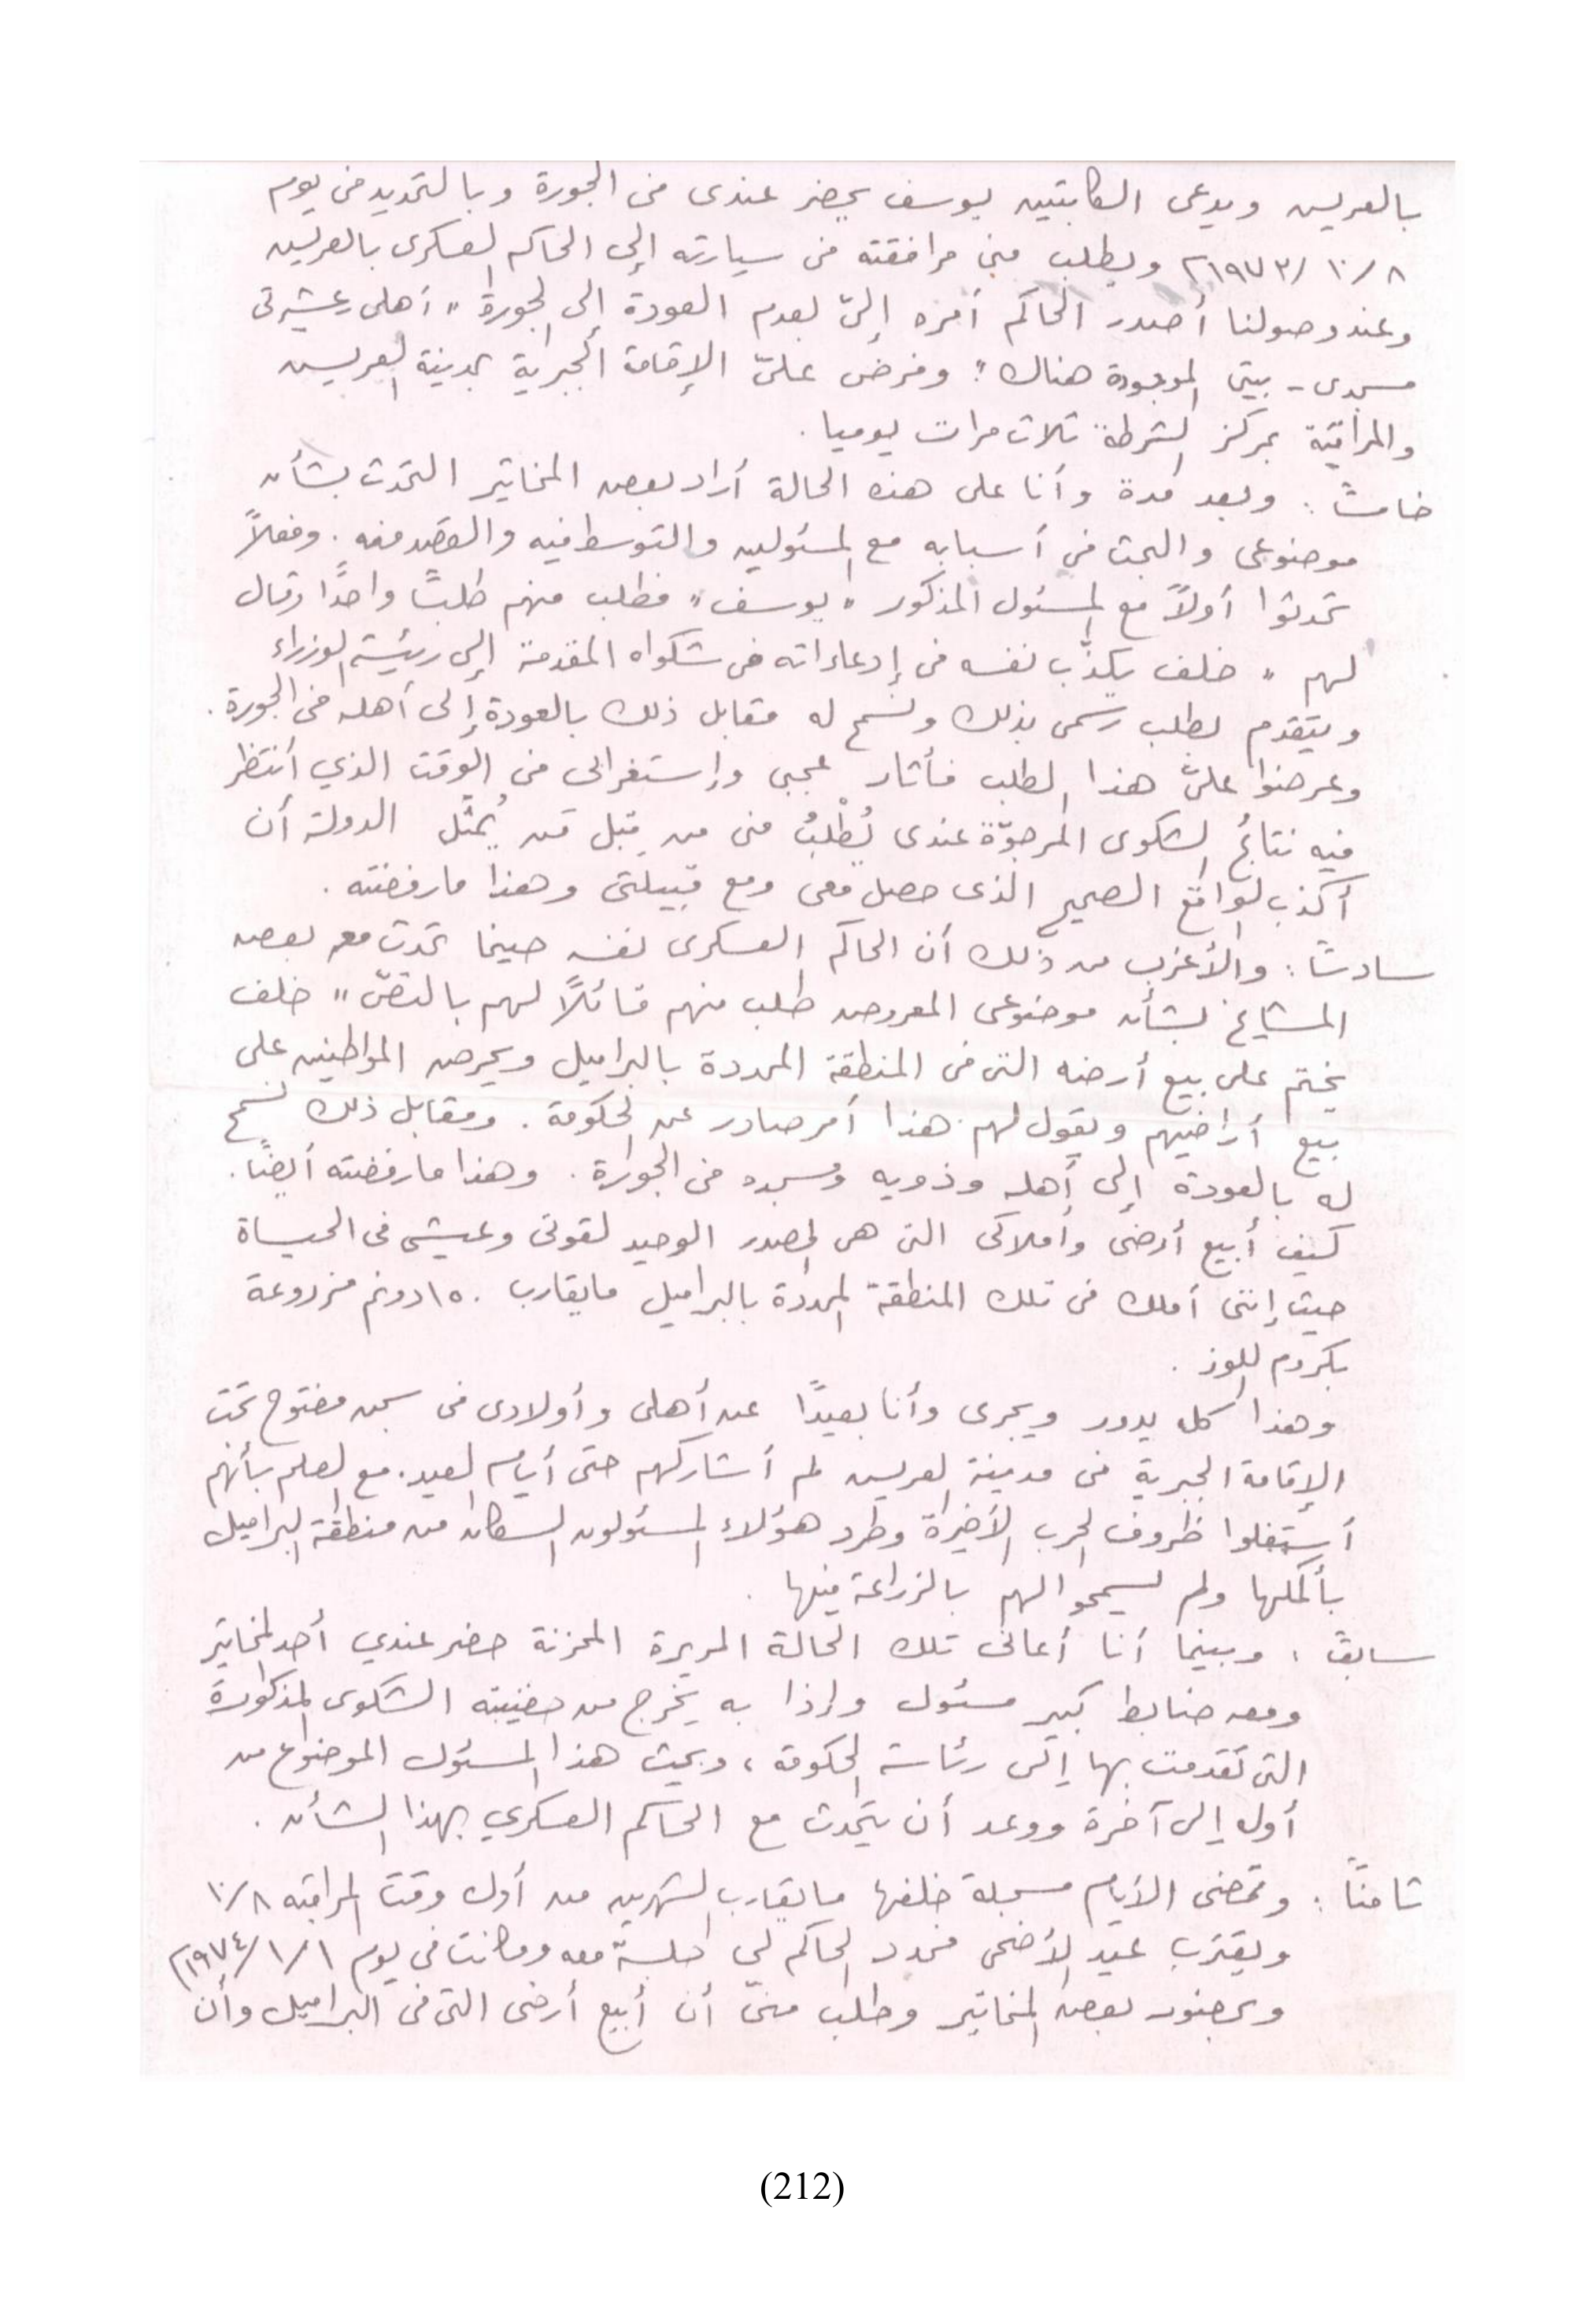 بالعريش ويدعى الكابتين يوسف يحضر عندى فى الجورة وبالتحديد فى يوم
٨/١٠/١٩٧٣م ويطلب منى مرافقته فى سيارته إلى الحاكم العسكرى بالعريش
وعند وصولنا أصدر الحاكم أمره إلىّ بعدم العودة إلى الجورة " أهلى وعشيرتى
مسجدى - بيتى الموجودة هناك " وفرض علىّ الإقامة الجبرية بمدينة العريش
والمراقبة بمركز الشرطة ثلاث مرات يوميا .
خامسًا : وبعد مدة وأنا على هذه الحالة أراد بعض المخاتير التحدث بشأن
موضوعى والبحث فى أسبابه مع المسئولين والتوسط فيه والقصد منه . وفعلاً
تحدثوا أولاً مع المسئول المذكور " يوسف " فطلب منهم طلبًا واحدًا وقال
لهم " خلف يكذّب نفسه فى إدعاءاته فى شكواه المقدمة إلى رئيسة الوزراء
ويتقدم بطلب رسمى بذلك ونسمح له مقابل ذلك بالعودة إلى أهله فى الجورة .
وعرضوا علىّ هذا الطلب فأثار عجبى وإستغرابى فى الوقت الذي أنتظر
فيه نتائج الشكوى المرجوّة عندى يُطْلبُ منى من قِبل مَن يُمثّل الدولة أن
أكذب الواقع الصحيح الذى حصل معى ومع قبيلتى وهذا مارفضته .
سادسًا : والأغرب من ذلك أن الحاكم العسكرى نفسه حينما تحدث معه بعض
المشايخ بشأن موضوعى المعروض طلب منهم قائلاً لهم بالنصّ " خلف
يختم على بيع أرضه التى فى المنطقة المحددة بالبراميل ويحرص المواطنين على
بيع أراضيهم ويقول لهم هذا أمر صادر عن الحكومة . ومقابل ذلك نسمح
له بالعودة إلى أهله وذويه ومسجده فى الجورة . وهذا مارفضته أيضًا .
كيف أبيع أرضى وأملاكى التى هى المصدر الوحيد لقوتى وعيشى فى الحياة
حيث إننى أملك فى تلك المنطقة المحددة بالبراميل مايقارب ١٥٠ دونم مزروعة
بكروم اللوز .
وهذا كله يدور ويجرى وأنا بعيدًا عن أهلى وأولادى فى سجن مفتوح تحت
الإقامة الجبرية فى مدينة العريش لم أشاركهم حتى أيام العيد . مع العلم بأنهم
أستغلوا ظروف الحرب الأخيرة وطرد هؤلاء المسئولون السكان من منطقة البراميل
بأكملها ولم يسمحوا لهم بالزراعة فيها .
سابعًا : وبينما أنا أعانى تلك الحالة المريرة المحزنة حضر عندي أحد المخاتير
ومعه ضابط كبير مسئول وإذا به يخرج من حقيبته الشكوى المذكورة
التى تقدمت بها إلى رئاسة الحكومة ، وبحث هذا المسئول الموضوع من
أوله إلى آخرة ووعد أن يتحدث مع الحاكم العسكري بهذا الشأن .
ثامنًا : وتمضى الأيام مسجلة خلفها مايقارب الشهرين من أول وقت المراقبه ٨/١٠
ويقترب عيد الأضحى فحدد الحاكم لي جلسة معه وكانت فى يوم ١/١/١٩٧٤م
وبحضور بعض المخاتير وطلب منىّ أن أبيع أرضى التى فى البراميل وأن
(212)